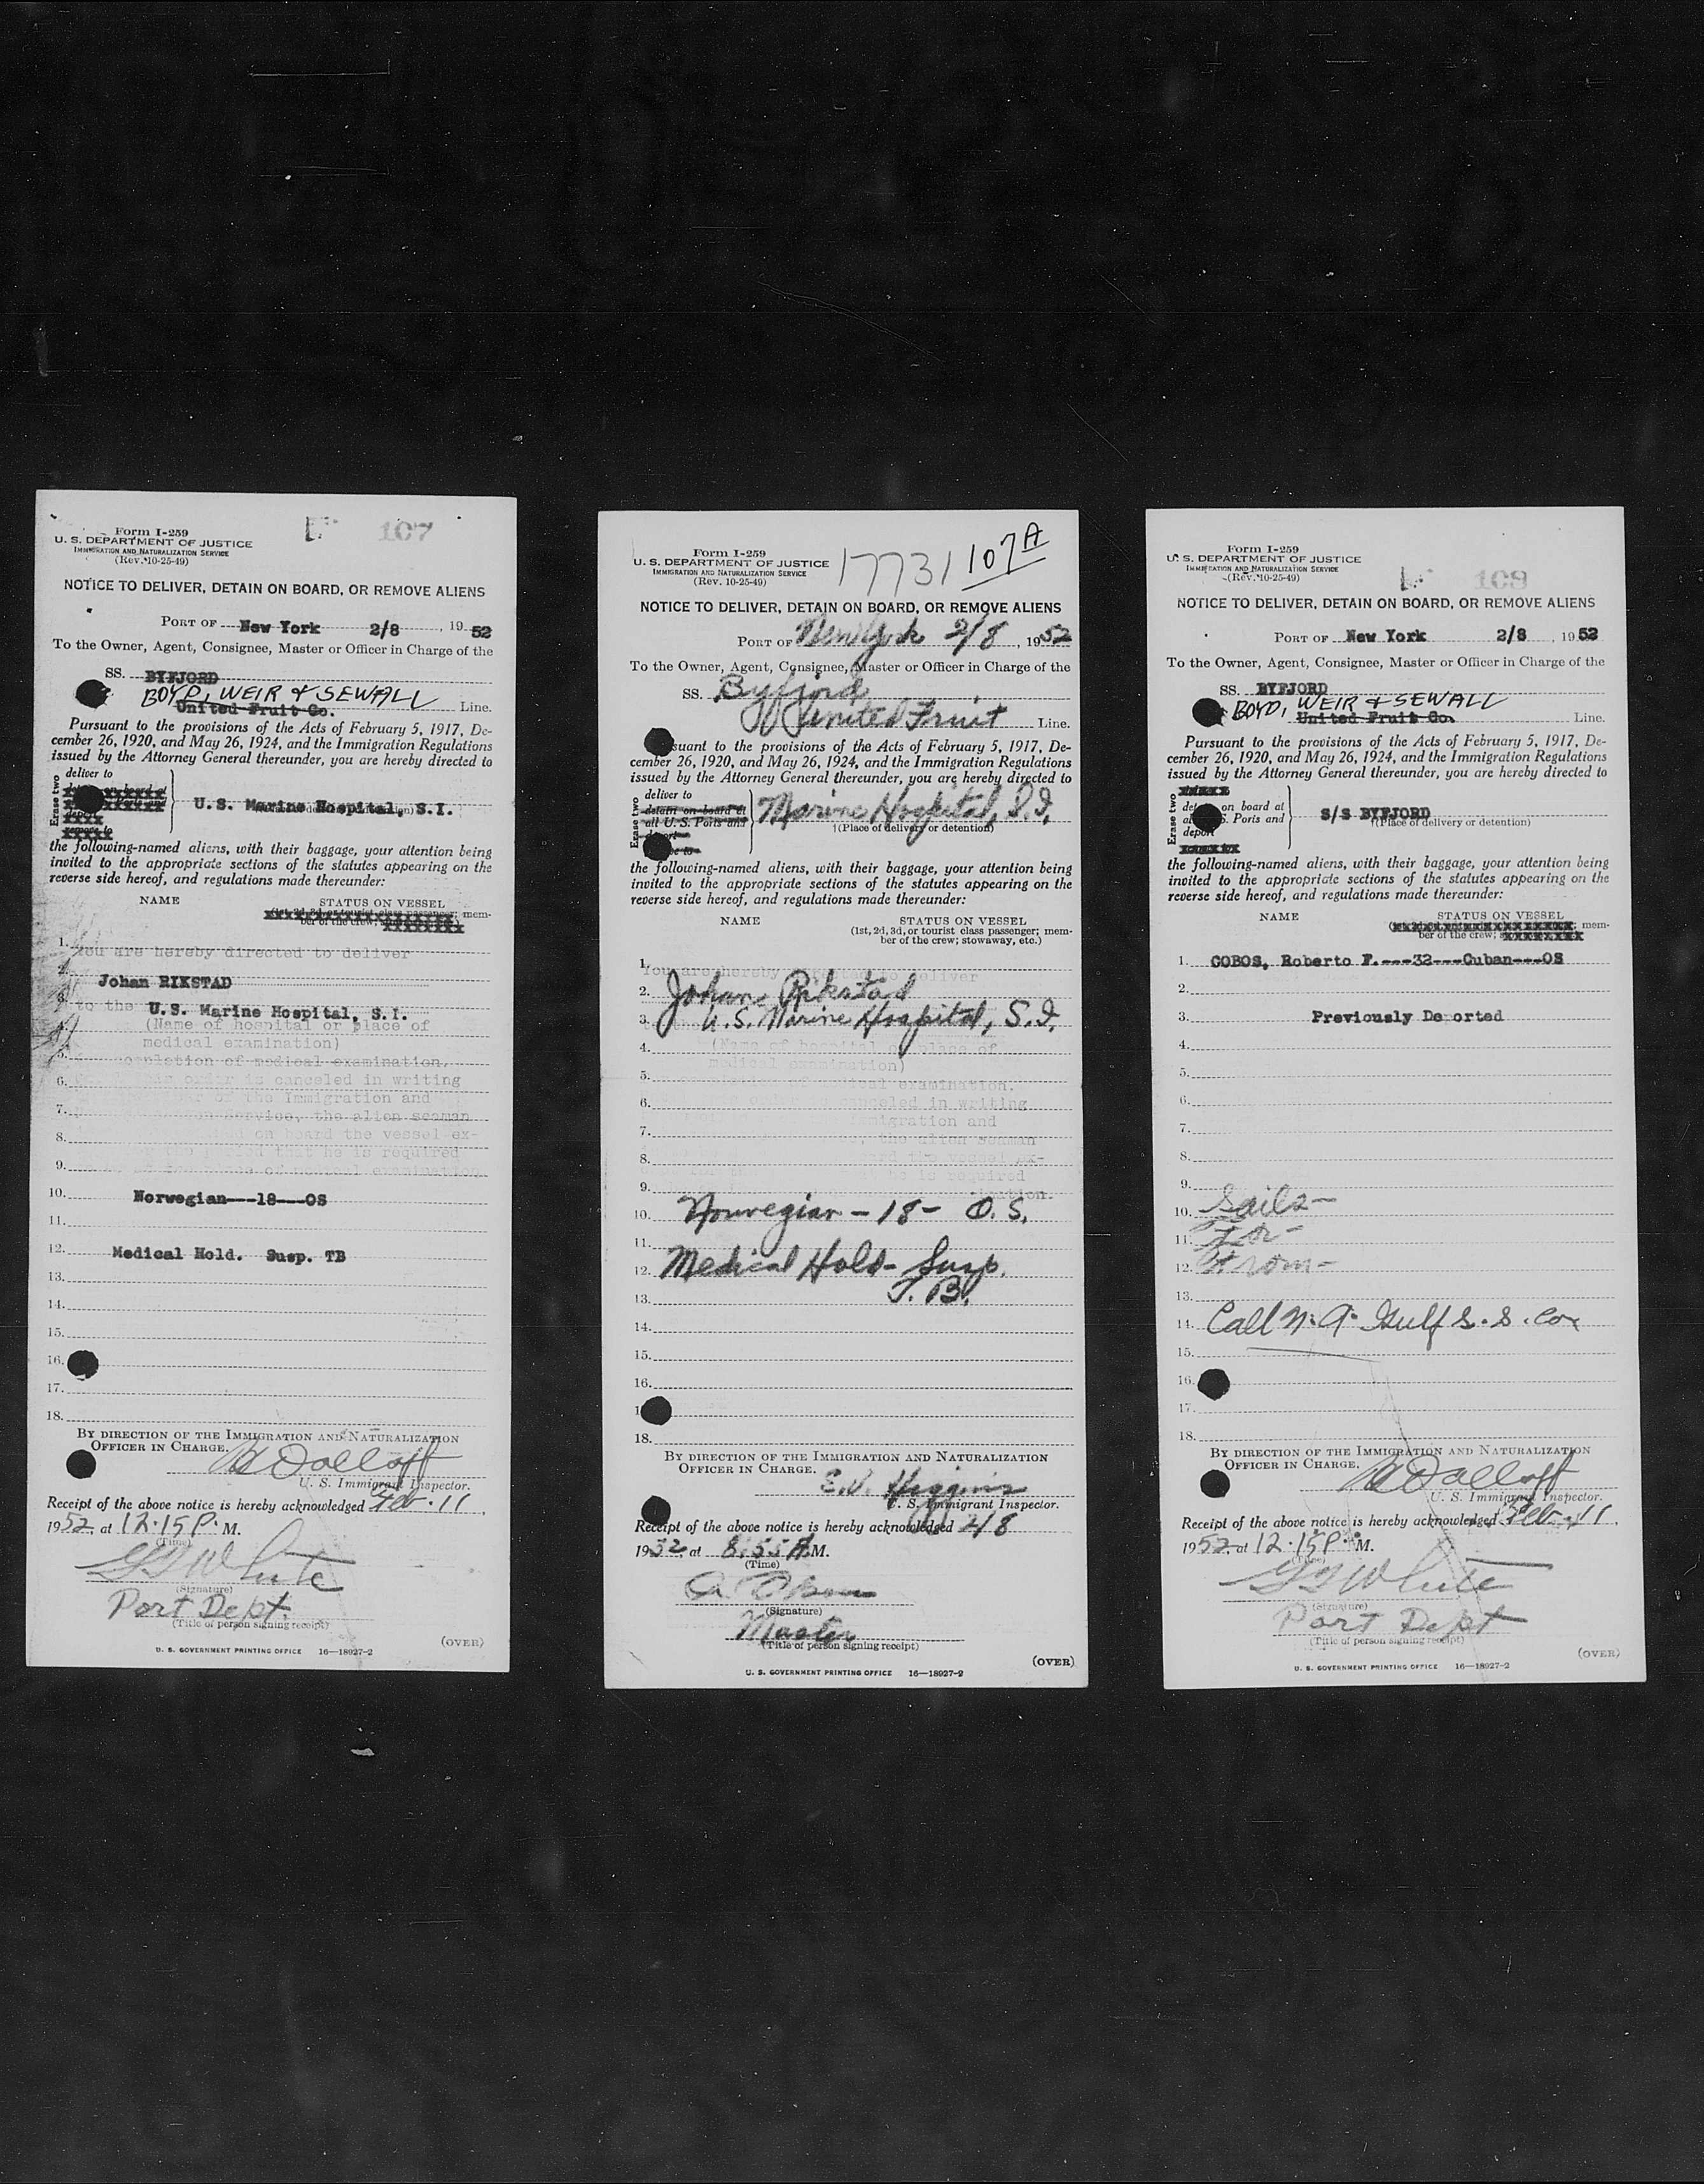 Form I-259
U. S. DEPARTMENT OF JUSTICE
IMMIGRATION AND NATURALIZATION SERVICE
(Rev. 10-25-49)
107
NOTICE TO DELIVER, DETAIN ON BOARD, OR REMOVE ALIENS
PORT OF New York 2/8, 1952
To the Owner, Agent, Consignee, Master or Officer in Charge of the
SS. BYFJORD
BOYD, WEIR & SEWALL
United Fruit Co. Line.
Pursuant to the provisions of the Acts of February 5, 1917, De-
cember 26, 1920, and May 26, 1924, and the Immigration Regulations
issued by the Attorney General thereunder, you are hereby directed to
Erase two
deliver to
U.S. Marine Hospital, S.I.
depart
remove to
the following-named aliens, with their baggage, your attention being
invited to the appropriate sections of the statutes appearing on the
reverse side hereof, and regulations made thereunder:
NAME STATUS ON VESSEL
(1st, 2d, 3d, or tourist class passenger; mem-
ber of the crew;
1. You are hereby directed to deliver
2. Johan RIKSTAD
3. to the U.S. Marine Hospital, S.I.
4. (Name of hospital or place of
medical examination)
5. completion of medical examination.
6. order is canceled in writing
of the Immigration and
7. Service, the alien seaman
8. on board the vessel ex-
the period that he is required
9. place of medical examination
10. Norwegian---18---OS
11.
12. Medical Hold. Susp. TB
13.
14.
15.
16.
17.
18.
BY DIRECTION OF THE IMMIGRATION AND NATURALIZATION
OFFICER IN CHARGE.
U. S. Immigrant Inspector.
Receipt of the above notice is hereby acknowledged Feb. 11,
1952, at 12:15 P. M.
(Time)
White
(Signature)
Port Dept.
(Title of person signing receipt)
(OVER)
U. S. GOVERNMENT PRINTING OFFICE 16—18927-2
Form I-259
U. S. DEPARTMENT OF JUSTICE
IMMIGRATION AND NATURALIZATION SERVICE
(Rev. 10-25-49)
17731 107A
NOTICE TO DELIVER, DETAIN ON BOARD, OR REMOVE ALIENS
PORT OF New York 2/8, 1952
To the Owner, Agent, Consignee, Master or Officer in Charge of the
SS. Byfjord
United Fruit Line.
suant to the provisions of the Acts of February 5, 1917, De-
cember 26, 1920, and May 26, 1924, and the Immigration Regulations
issued by the Attorney General thereunder, you are hereby directed to
Erase two
deliver to
detain on board at
all U.S. Ports and
deport
Marine Hospital, S.I.
†(Place of delivery or detention)
the following-named aliens, with their baggage, your attention being
invited to the appropriate sections of the statutes appearing on the
reverse side hereof, and regulations made thereunder:
NAME STATUS ON VESSEL
(1st, 2d, 3d, or tourist class passenger; mem-
ber of the crew; stowaway, etc.)
1. You are hereby directed to deliver
2. Johan Rikstad
3. U.S. Marine Hospital, S.I.
4. (Name of hospital or place of
medical examination)
5. of medical examination.
6. canceled in writing
Immigration and
7. the alien seaman
8. board the vessel ex-
he is required
9.
10. Norwegian - 18 - O.S.
11.
12. Medical Hold - Susp.
13. T.B.
14.
15.
16.
18.
BY DIRECTION OF THE IMMIGRATION AND NATURALIZATION
OFFICER IN CHARGE.
E.V. Higgins
U. S. Immigrant Inspector.
Receipt of the above notice is hereby acknowledged 2/8
1952, at 8:55 A.M.
(Time)
(Signature)
Master
(Title of person signing receipt)
(OVER)
U. S. GOVERNMENT PRINTING OFFICE 16—18927-2
Form I-259
U. S. DEPARTMENT OF JUSTICE
IMMIGRATION AND NATURALIZATION SERVICE
(Rev. 10-25-49)
109
NOTICE TO DELIVER, DETAIN ON BOARD, OR REMOVE ALIENS
PORT OF New York 2/8, 1952
To the Owner, Agent, Consignee, Master or Officer in Charge of the
SS. BYFJORD
BOYD, WEIR & SEWALL
United Fruit Co. Line.
Pursuant to the provisions of the Acts of February 5, 1917, De-
cember 26, 1920, and May 26, 1924, and the Immigration Regulations
issued by the Attorney General thereunder, you are hereby directed to
Erase two
on board at
S. Ports and
deport
S/S BYFJORD
†(Place of delivery or detention)
the following-named aliens, with their baggage, your attention being
invited to the appropriate sections of the statutes appearing on the
reverse side hereof, and regulations made thereunder:
NAME STATUS ON VESSEL
mem-
ber of the crew;
1. COBOS, Roberto F.---32---Cuban---OS
2.
3. Previously De orted
4.
5.
6.
7.
8.
9.
10. Sails-
11. For-
12. From-
13.
14. Call N. A. Gulf S. S. Co.
15.
16.
17.
18.
BY DIRECTION OF THE IMMIGRATION AND NATURALIZATION
OFFICER IN CHARGE.
U. S. Immigrant Inspector.
Receipt of the above notice is hereby acknowledged Feb. 11,
1952, at 12:15 P. M.
(Time)
White
(Signature)
Port Dept
(Title of person signing receipt)
(OVER)
U. S. GOVERNMENT PRINTING OFFICE 16—18927-2